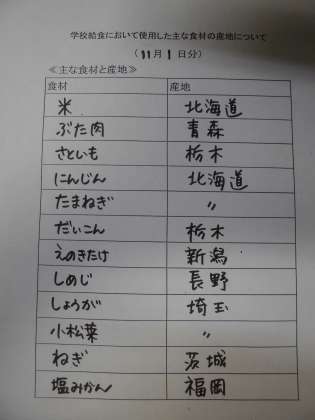 学校給食において使用した主な食材の産地について
(11月1日分)
≪主な食材と産地≫
食材 産地
米 北海道
ぶた肉 青森
さといも 栃木
にんじん 北海道
たまねぎ 〃
だいこん 栃木
えのきたけ 新潟
しめじ 長野
しょうが 埼玉
小松菜 〃
ねぎ 茨城
塩みかん 福岡